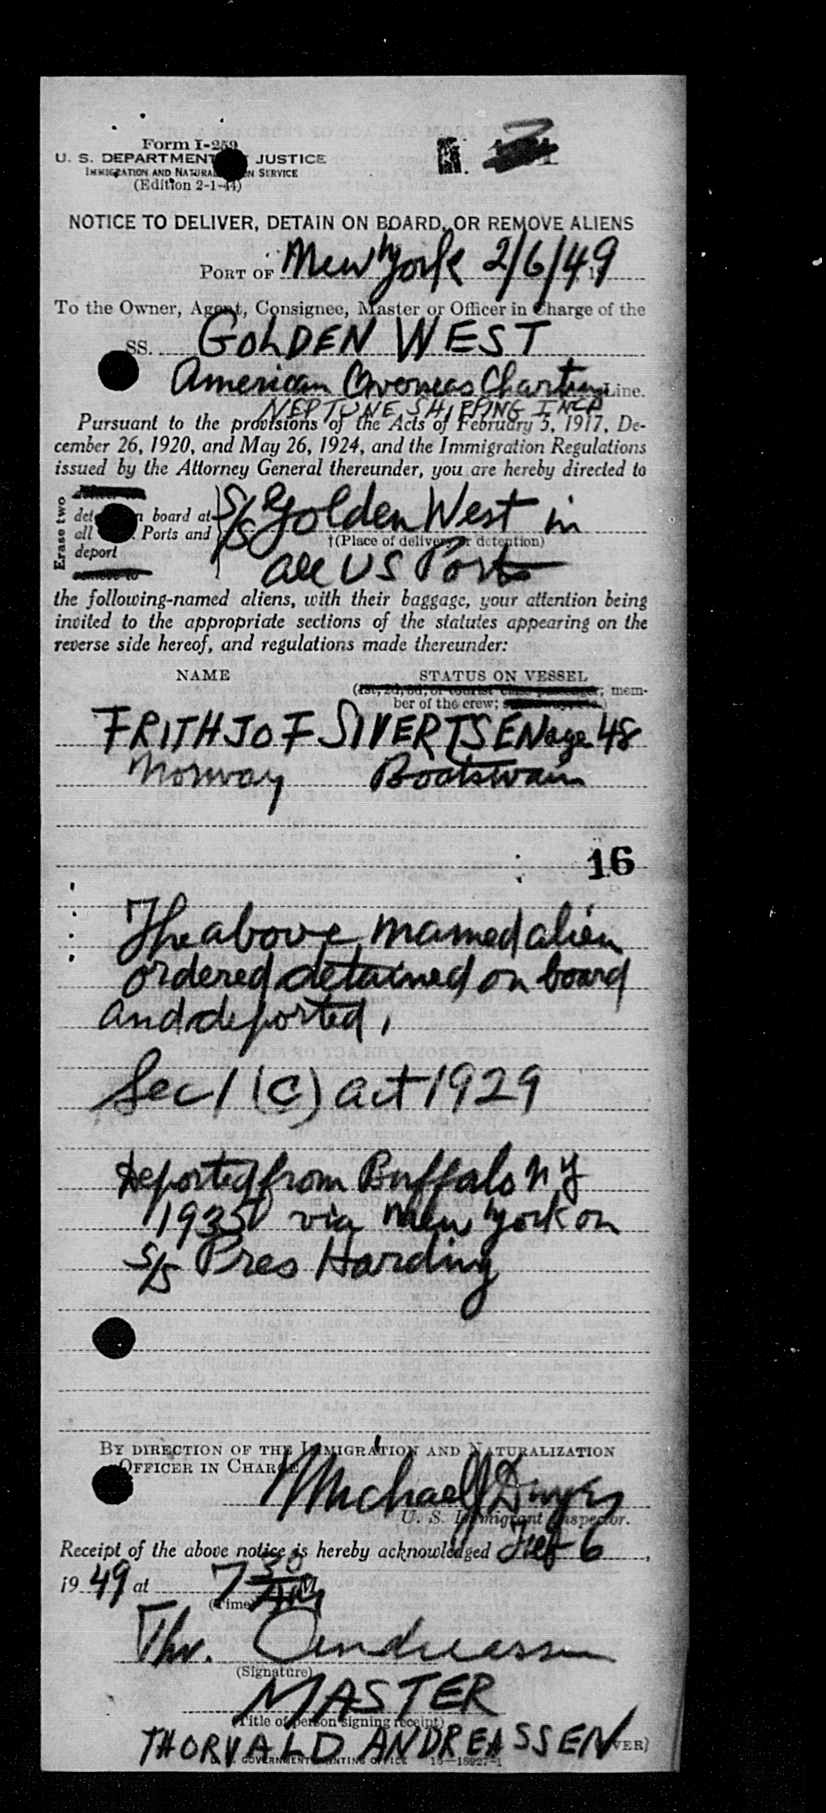 Form I-259
U. S. DEPARTMENT JUSTICE
IMMIGRATION AND NATURAL N SERVICE
(Edition 2-1-44)
NOTICE TO DELIVER, DETAIN ON BOARD, OR REMOVE ALIENS
PORT OF New York 2/6/49
To the Owner, Agent, Consignee, Master or Officer in Charge of the
SS. GOLDEN WEST
American Overseas Charting Line.
NEPTUNE SHIPPING INCP
Pursuant to the provisions of the Acts of February 5, 1917, De-
cember 26, 1920, and May 26, 1924, and the Immigration Regulations
issued by the Attorney General thereunder, you are hereby directed to
Erase two
det n board at
all Ports and
deport
S/S Golden West in
†(Place of delivery or detention)
all US Ports
the following-named aliens, with their baggage, your attention being
invited to the appropriate sections of the statutes appearing on the
reverse side hereof, and regulations made thereunder:
NAME STATUS ON VESSEL
(1st, 2d, 3d, or tourist class passenger; mem-
ber of the crew;
FRITHJOF SIVERTSEN age 48
Norway Boatswain
16
The above named alien
ordered detained on board
and deported,
Sec 1 (C) act 1929
Deported from Buffalo NY
1935 via New York on
S/S Pres Harding
BY DIRECTION OF THE IMMIGRATION AND NATURALIZATION
OFFICER IN CHARGE
Michael J Dwyer
U. S. Immigrant Inspector.
Receipt of the above notice is hereby acknowledged Feb 6,
1949 at 7 30 AM
(Time)
Thv. Andreassen
(Signature)
MASTER
(Title of person signing receipt)
THORVALD ANDREASSEN VER)
GOVERNMENT PRINTING OFFICE 16—18927-1